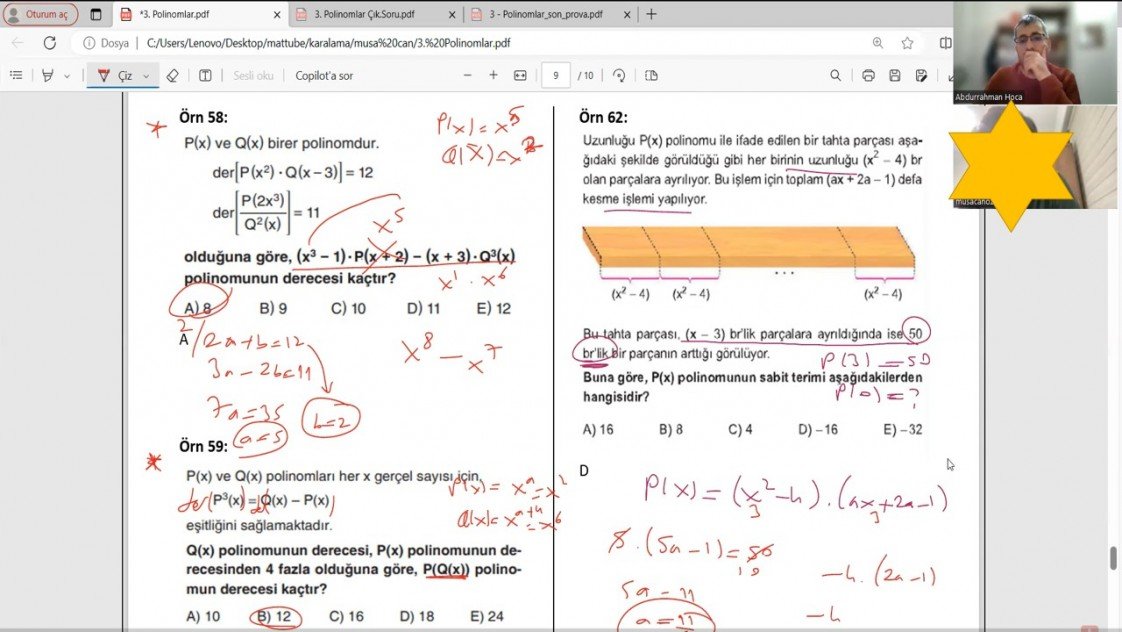 Oturum aç
*3. Polinomlar.pdf
3. Polinomlar Çık.Soru.pdf
3 - Polinomlar_son_prova.pdf
Dosya
C:/Users/Lenovo/Desktop/mattube/karalama/musa%20can/3.%20Polinomlar.pdf
Çiz
Sesli oku
Copilot'a sor
9 / 10
Abdurrahman Hoca
Örn 58:
P(x) = x⁵
Q(x) = x²
P(x) ve Q(x) birer polinomdur.
der[P(x²) · Q(x – 3)] = 12
der[P(2x³) / Q²(x)] = 11
x⁵
olduğuna göre, (x³ – 1) · P(x + 2) – (x + 3) · Q³(x)
polinomunun derecesi kaçtır?
x¹ · x⁶
A) 8 B) 9 C) 10 D) 11 E) 12
A
2/ 2a+b=12
3a – 2b=11
x⁸ – x⁷
7a=35
a=5
b=2
Örn 59:
P(x) ve Q(x) polinomları her x gerçel sayısı için,
P(x) = xᵃ = x²
der(P³(x) = Q(x) – P(x)
Q(x) = xᵃ⁺⁴ = x⁶
eşitliğini sağlamaktadır.
Q(x) polinomunun derecesi, P(x) polinomunun de-
recesinden 4 fazla olduğuna göre, P(Q(x)) polino-
mun derecesi kaçtır?
A) 10 B) 12 C) 16 D) 18 E) 24
Örn 62:
Uzunluğu P(x) polinomu ile ifade edilen bir tahta parçası aşa-
ğıdaki şekilde görüldüğü gibi her birinin uzunluğu (x² – 4) br
olan parçalara ayrılıyor. Bu işlem için toplam (ax + 2a – 1) defa
kesme işlemi yapılıyor.
(x² – 4) (x² – 4) ... (x² – 4)
Bu tahta parçası, (x – 3) br'lik parçalara ayrıldığında ise 50
br'lik bir parçanın arttığı görülüyor.
P(3) = 50
Buna göre, P(x) polinomunun sabit terimi aşağıdakilerden
hangisidir?
P(0) = ?
A) 16 B) 8 C) 4 D) –16 E) –32
D
P(x) = (x² – 4) · (ax + 2a – 1)
3 3
5 · (5a – 1) = 50
10
– 4 · (2a – 1)
5a – 11
a = 11
– 4